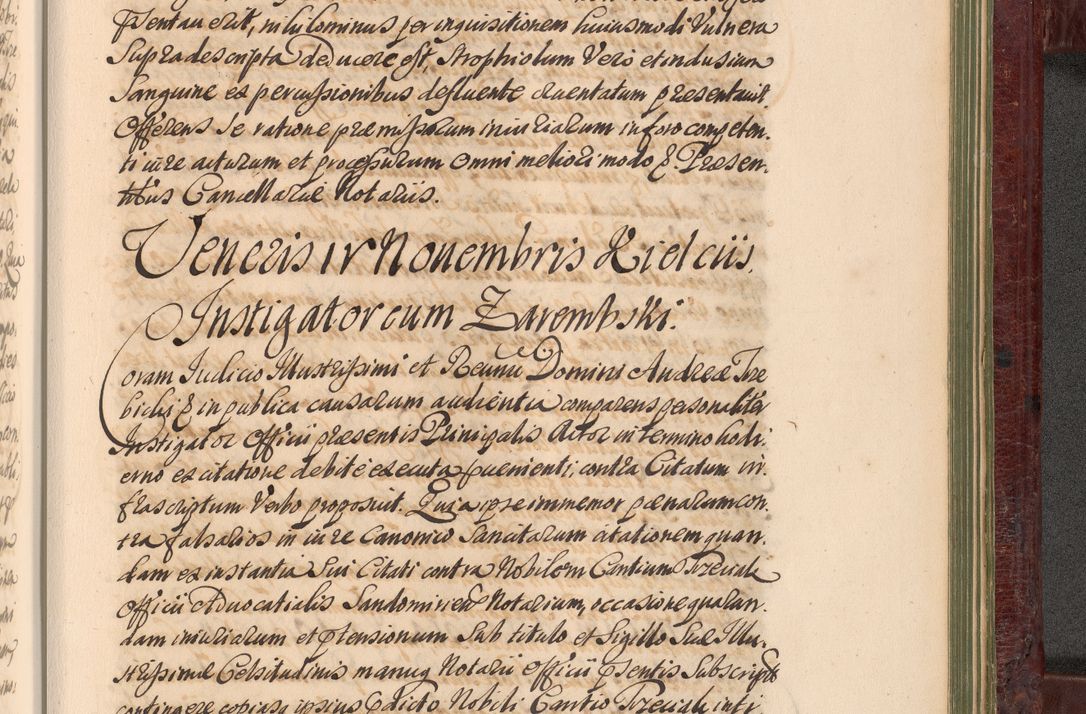 psentauerit, nihilominus per inquisitionem huiusmodi Vulnera
Supradescripta deducere est, Strophiolum Vero et indusium
Sanguine ex percussionibus defluente cruentatum praesentauit
Offerens se ratione praemissorum iniuriarum in foro competen-
ti iure acturum et processurum omni meliori modo & Praesen-
tibus Cancellariae Notariis.
Veneris IV Nouembris Kielciis.
Instigator cum Zarembski.
Coram Iudicio Illustrissimi et Reundi Domini Andreae Trze
bicki & in publica causarum audientia comparens personaliter
Instigator Officii praesentis Principalis Actor in termino hodi
erno ex citatione debite executa prouenienti, contra Citatum in
frascriptum Verbo proposuit. Quia ipse immemor paenarum con
tra falsarios in iure Canonico Sancitarum citationem quan
dam ex instantia Sui Citati contra Nobilem Cantium Trzeciak
Officii Aduocatialis Sandomirien Notarium, occasione quarun
dam iniuriarum et ptensionum Sub titulo et Sigillo Suae Illu-
strissimae Celsitudinis manuq Notarii officii psentis Subscript
contingere copiasq ipsius Edicto Nobili Cantio Trzeciak inti